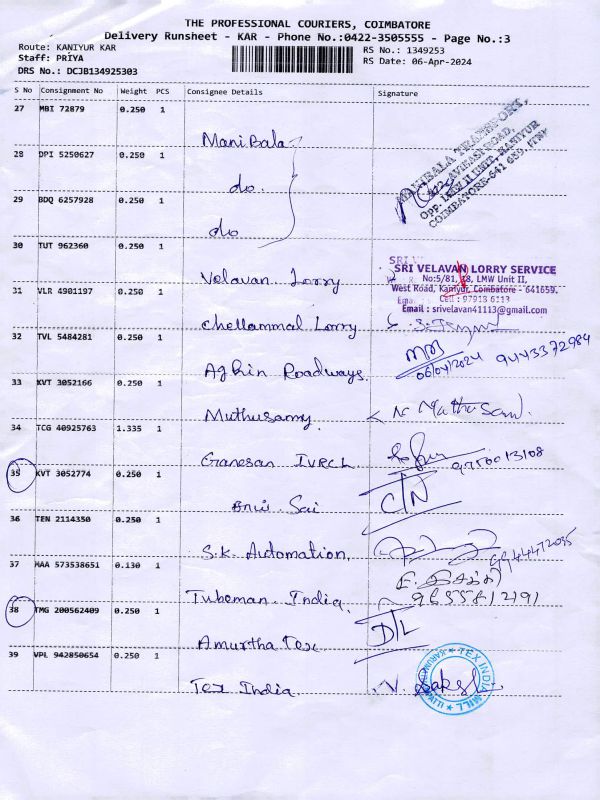 THE PROFESSIONAL COURIERS, COIMBATORE
Delivery Runsheet - KAR - Phone No.:0422-3505555 - Page No.:3
Route: KANIYUR KAR
RS No.: 1349253
Staff: PRIYA
RS Date: 06-Apr-2024
DRS No.: DCJB134925303
S No Consignment No Weight PCS Consignee Details Signature
27 MBI 72879 0.250 1 Manibala
MANIBALA TRANSPORT,
AVINASI ROAD,
OPP. LMW II UNIT, KANIYUR
28 DPI 5250627 0.250 1 do.
29 BDQ 6257928 0.250 1 do
30 TUT 962360 0.250 1 Velavan Lorry
SRI VELAVAN LORRY SERVICE
No:5/81, LMW Unit II,
West Road, Kaniyur, Coimbatore - 641659.
Cell : 97913 6113
Email : srivelavan41113@gmail.com
31 VLR 4901197 0.250 1 Chellammal Lorry
32 TVL 5484281 0.250 1 Aghin Roadways. 06/04/2024 9443372984
33 KVT 3052166 0.250 1 Muthusamy N. Muthusami
34 TCG 40925763 1.335 1 Ganesan IVRCL 9750013108
35 KVT 3052774 0.250 1 Sai C/N
36 TEN 2114350 0.250 1 S.K. Automation.
37 MAA 573538651 0.130 1 Tubeman India 9655812191
38 TMG 200562409 0.250 1 Amurtha Tex D/L
39 VPL 942850654 0.250 1 Tex India V. Sakthi
TEX INDIA MILL